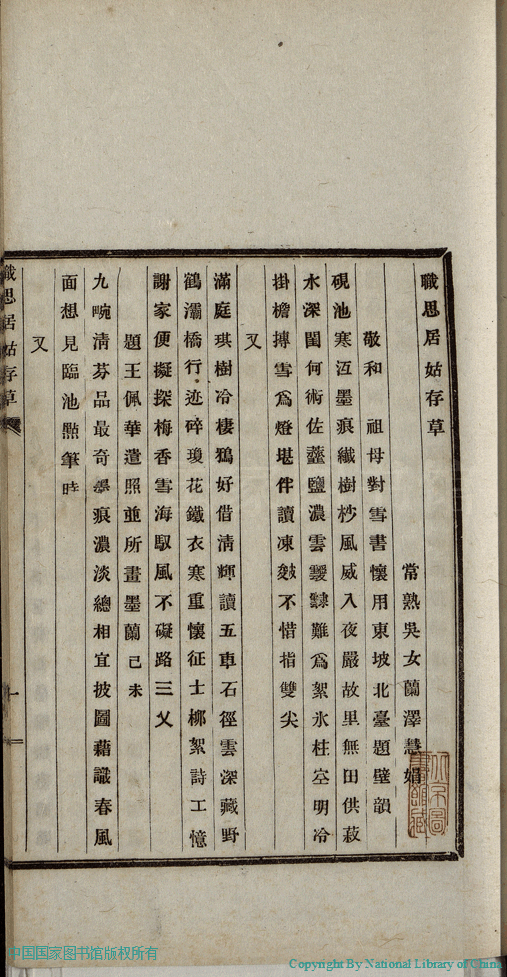 職思居姑存草
常熟吳女蘭澤慧娟
敬和 祖母對雪書懷用東坡北臺題壁韻
硯池寒沍墨痕纖樹杪風威入夜嚴故里無田供菽
水深閨何術佐虀鹽濃雲靉靆難為絮氷柱空明冷
掛檐摶雪為燈堪伴讀凍皴不惜指雙尖
又
滿庭琪樹冷棲鴉好借清輝讀五車石徑雲深藏野
鶴灞橋行迹碎瓊花鐵衣寒重懷征士柳絮詩工憶
謝家便擬探梅香雪海馭風不礙路三叉
題王佩華遺照並所畫墨蘭 己未
九畹清芬品最奇墨痕濃淡總相宜披圖藉識春風
面想見臨池㸃筆時
又
職思居姑存草
一
中国国家图书馆版权所有
Copyright By National Library of China